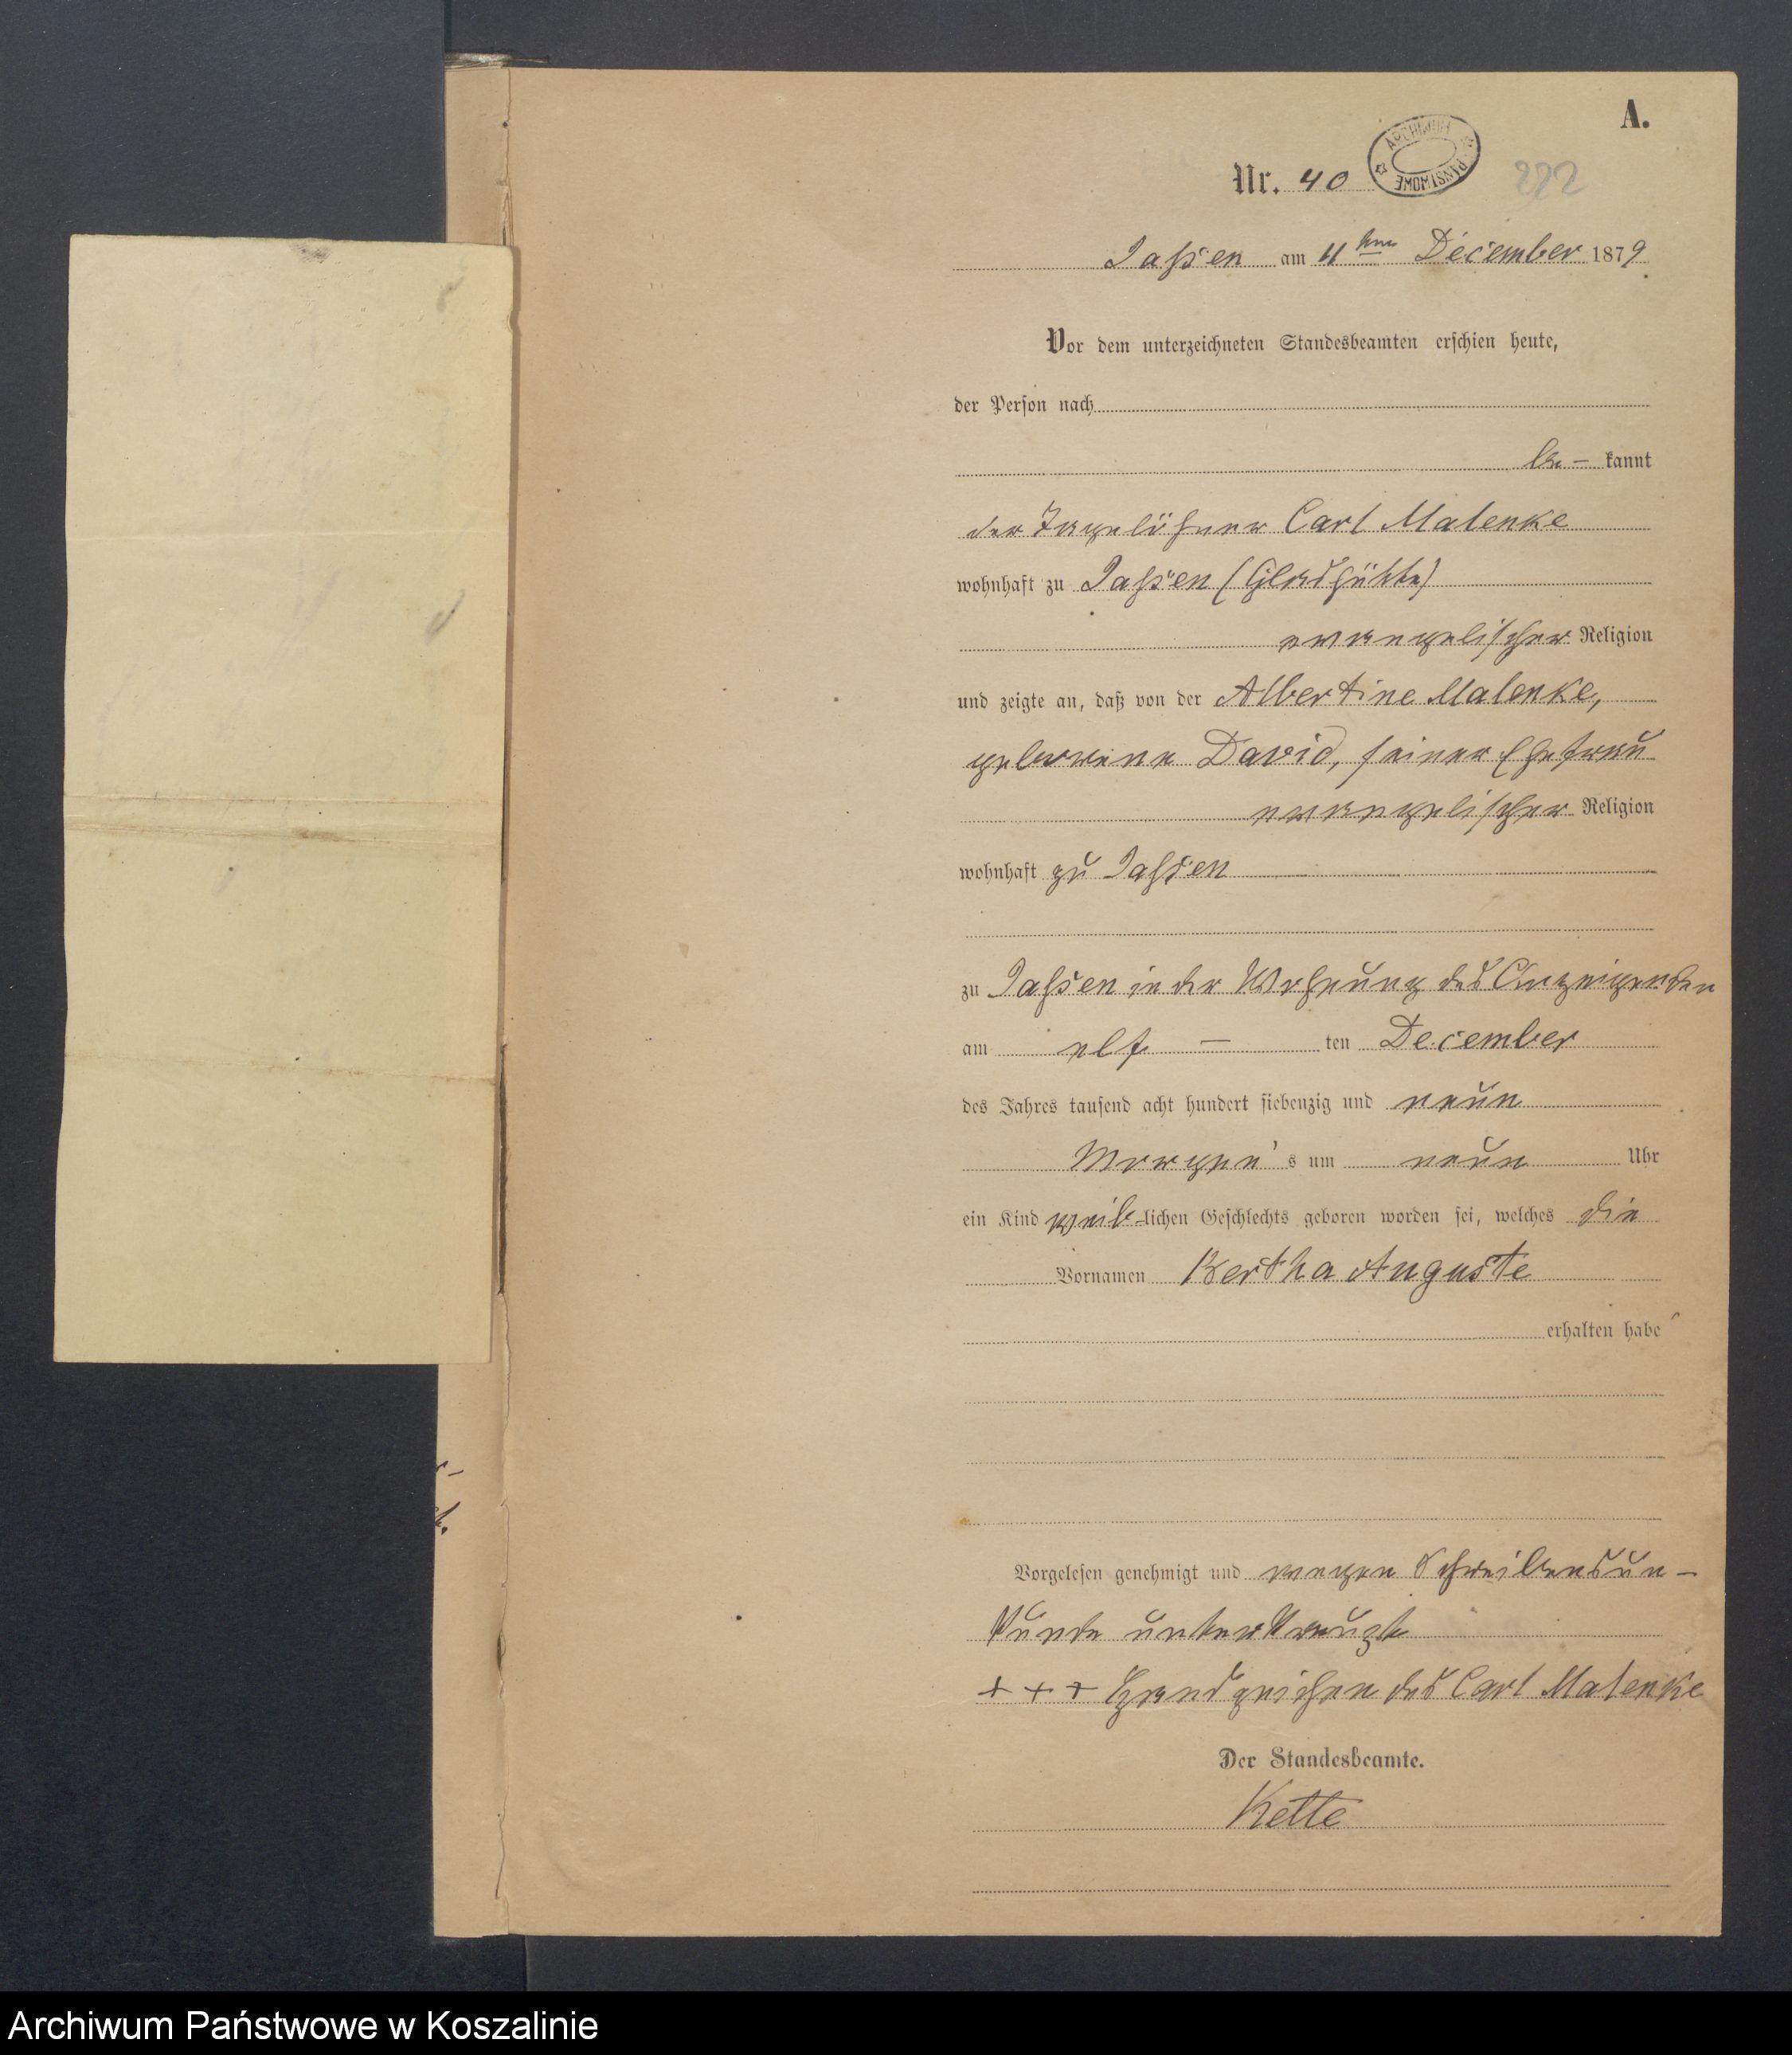 A.
Nr. 40
ARCHIWUM PAŃSTWOWE
222
Jassen am 11ten December 1879.
Vor dem unterzeichneten Standesbeamten erschien heute,
der Person nach
be- kannt
der Tagelöhner Carl Malenke
wohnhaft zu Jassen (Glashütte)
evangelischer Religion
und zeigte an, daß von der Albertine Malenke,
geborene David, seiner Ehefrau
evangelischer Religion
wohnhaft zu Jassen
zu Jassen in der Wohnung des Anzeigenden
am elf - ten December
des Jahres tausend acht hundert siebenzig und neun
Morgen's um neun Uhr
ein Kind weib-lichen Geschlechts geboren worden sei, welches die
Vornamen Bertha Auguste
erhalten habe
Vorgelesen genehmigt und wegen Schreibensun-
kunde unterkreuzt
+ + + Handzeichen des Carl Malenke
Der Standesbeamte.
Kette
Archiwum Państwowe w Koszalinie